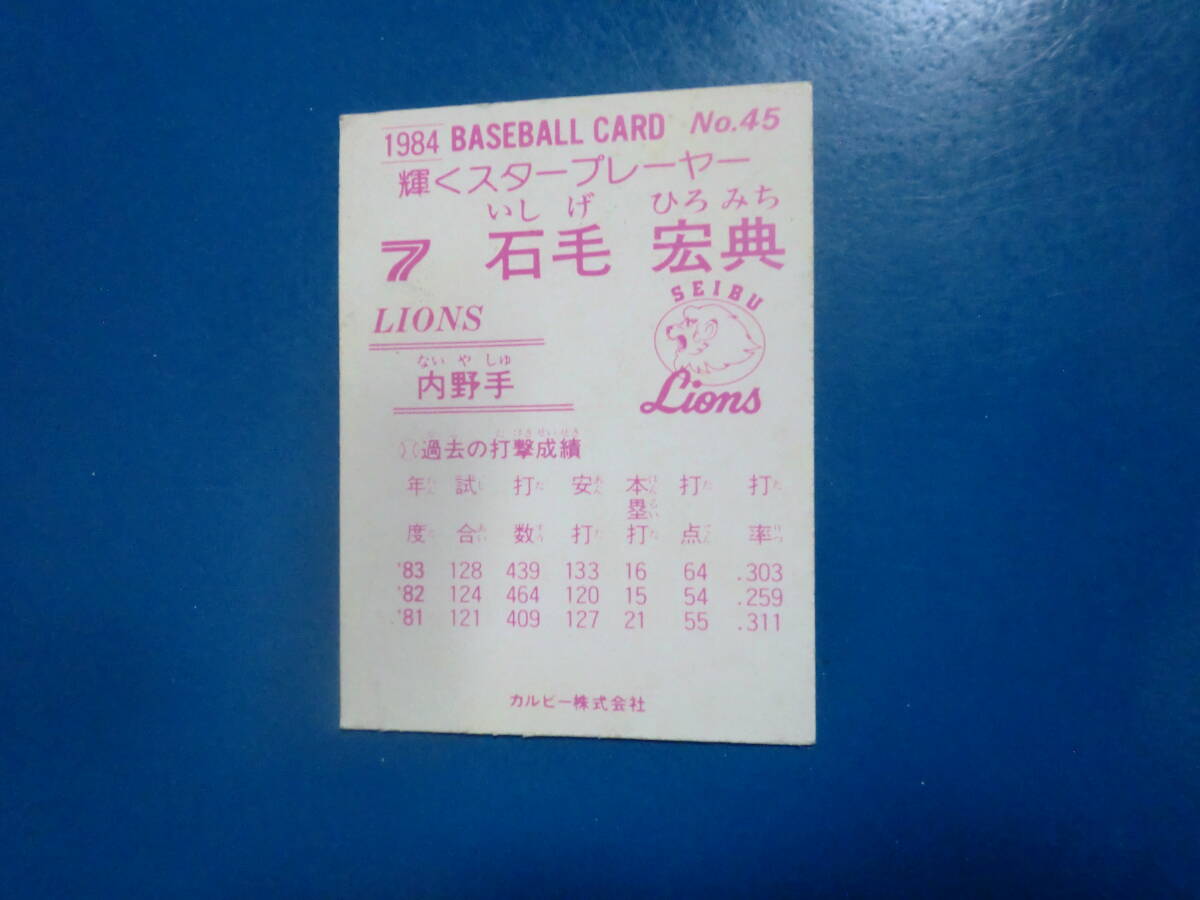 1984 BASEBALL CARD No.45
輝くスタープレーヤー
いし げ ひろ みち
7 石毛 宏典
SEIBU
LIONS
ない や しゅ
内野手
Lions
過去の打撃成績
年 試 打 安 本 打 打
塁
度 合 数 打 打 点 率
'83 128 439 133 16 64 .303
'82 124 464 120 15 54 .259
'81 121 409 127 21 55 .311
カルビー株式会社